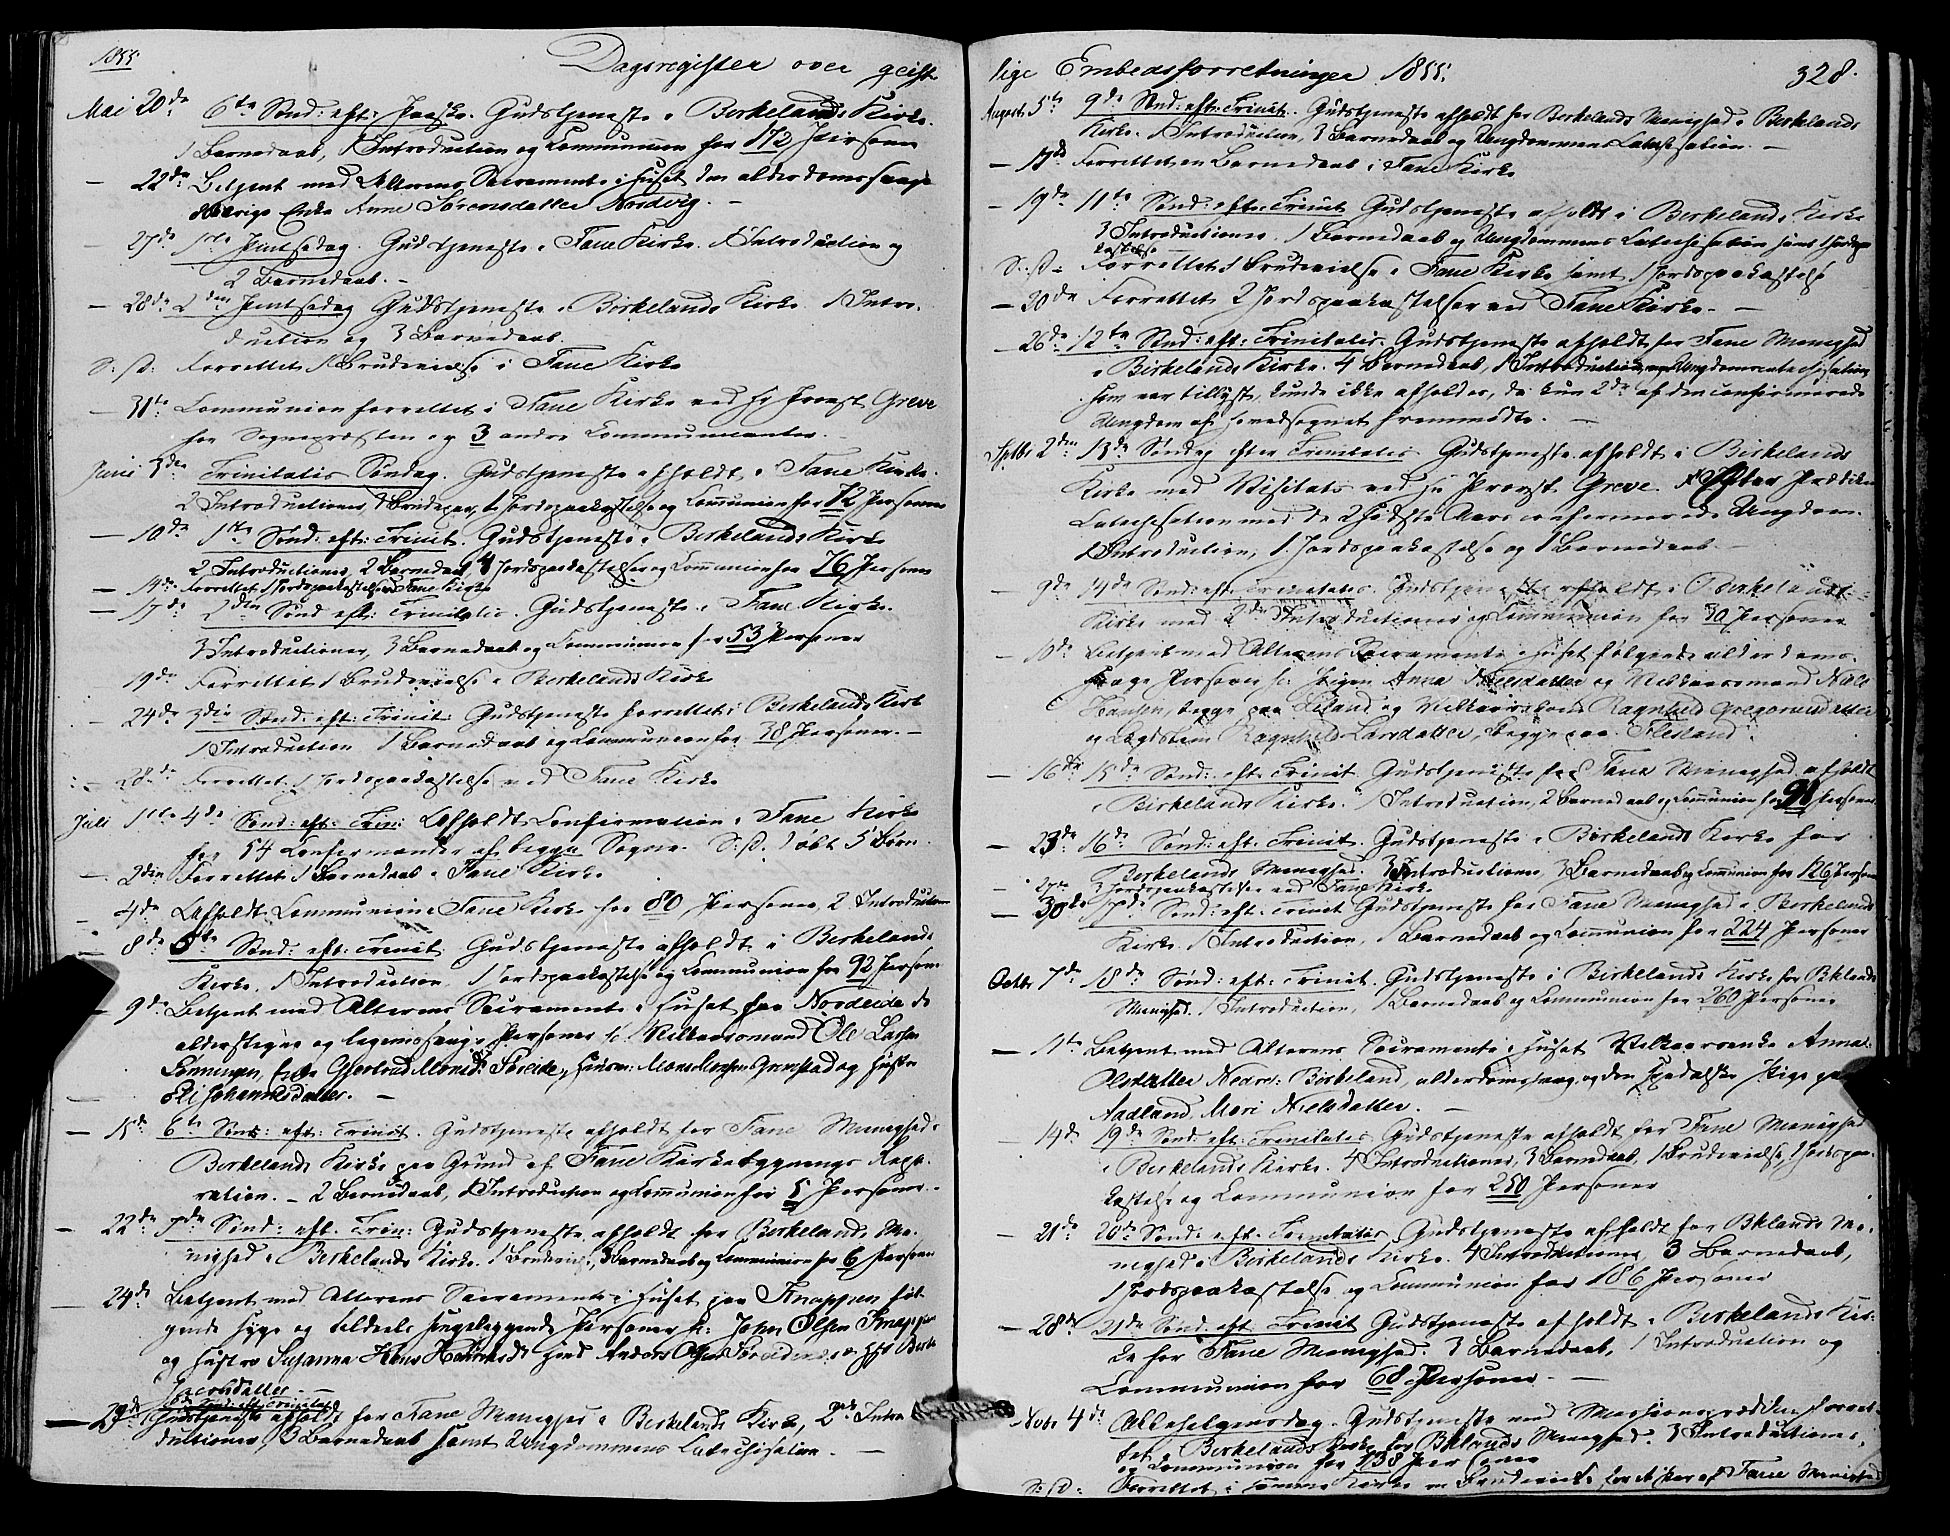 1855.
Dagsregister over geist-
Mai 20de 6te Sønd: eft: Paaske. Gudstjeneste i Birkelands Kirke.
1 Barnedaab, 1 Introduction og Communion for 172 Personer
— 22de Betjent med Alterens Sacramente i Huset den alderdomssvage
Enke Anne Sørensdatter Nordvig. —
— 27de 1ste Pintsedag. Gudstjeneste i Fane Kirke. 1 Introduction og
2 Barnedaab. —
— 28de 2den Pintsedag Gudstjeneste i Birkelands Kirke 1 Intro-
duction og 3 Barnedaab.
S: D: Forrettet 1 Brudevielse i Fane Kirke
— 31te Communion forrettet i Fane Kirke ved Hr Provst Greve
for Sognepræsten og 3 andre Communicanter. —
Junii 3die Trinitatis Søndag. Gudstjeneste afholdt i Fane Kirke.
2 Introductioner, 1 Brudepar, 1 Jordspaakastelse og Communion for 72 Personer
— 10de 1ste Sønd: eft: Trinit. Gudstjeneste i Birkelands Kirke
2 Introductioner, 2 Barnedaab, 4 Jordspaakastelser og Communion for 76 Personer
— 14de Forrettet 1 Jordspaakastelse ved Fane Kirke
— 17de 2den Sønd eft: Trinitatis. Gudstjeneste i Fane Kirke.
3 Introductioner, 3 Barnedaab og Communion for 53 Personer
19de Forrettet 1 Brudevielse i Birkelands Kirke
— 24de 3die Sønd: eft: Trinit: Gudstjeneste forrettet i Birkelands Kirke
1 Introduction 1 Barnedaab og Communion for 38 Personer. —
— 28de Forrettet 1 Jordspaakastelse ved Fane Kirke
Juli 1ste 4de Sønd: eft: Trin: Afholdt Confirmation i Fane Kirke
for 54 Confirmander af begge Sogne. S: D. døbt 5 Børn.
— 2den Forrettet 1 Barnedaab i Fane Kirke
— 4de Afholdt Communion i Fane Kirke for 80 Personer, 2 Introductioner
— 8de 5te Sønd: eft: Trinit. Gudstjeneste afholdt i Birkelands
Kirke, 1 Introduction, 1 Jordspaakastelse og Communion for 92 Personer
— 9de Betjent med Alterens Sacramente i Huset paa Nordeide de
alderstegne og legemssvage Personer Vilkaarsmand Ole Larsen
Enke Gjertrud Monsd: Søreide, Huusm: Mons og Hustru
Johannesdatter. —
— 15de 6te Sønd: eft: Trinit. Gudstjeneste afholdt for Fane Menighed i
Birkelands Kirke paa Grund af Fane Kirkebygnings Repa-
ration. — 2 Barnedaab, 1 Introduction og Communion for 5 Personer. —
— 22de 7de Sønd: eft. Trin: Gudstjeneste afholdt for Birkelands Me-
nighed i Birkelands Kirke. 1 Brudevielse, 3 Barnedaab og Communion for 6 Personer
— 24de Betjent med Alterens Sacramente i Huset paa Knappen føl-
gende syge og tildeels sengeliggende Personer John Olsen Knappen
og Hustru Susanna Anders Olsen
Jacobsdatter. —
8de Sønd: eft: Trinitatis
— 29de Gudstjeneste afholdt for Fane Menighed i Birkelands Kirke, 2de Intro-
ductioner, 3 Barnedaab samt Ungdommens Catechisation. —
lige Embedsforretninger 1855.
328.
August 5te 9de Sønd: eft: Trinit. Gudstjeneste afholdt for Birkelands Menighed i Birkelands
Kirke. 1 Introduction, 3 Barnedaab og Ungdommens Catechisation. —
— 17de Forrettet en Barnedaab i Fane Kirke
— 19de 11te Sønd: eft: Trinit Gudstjeneste afholdt i Birkelands Kirke
3 Introductioner, 1 Barnedaab og Ungdommens Catechisation samt 1 Jordspaa-
kastelse
S: D: Forrettet 1 Brudevielse i Fane Kirke samt 1 Jordspaakastelse
— 20de Forrettet 2 Jordspaakastelser ved Fane Kirke. —
— 26de 12te Sønd: eft: Trinitatis. Gudstjeneste afholdt for Fane Menighed
i Birkelands Kirke. 4 Barnedaab, 1 Introduction, Ungdomscatechisation
som var tillyst, kunde ikke afholdes, da kun 2de af den confirmerede
Ungdom af Hovedsognet fremmødte. —
Septbr 2den 13de Søndag efter Trinitatis Gudstjeneste afholdt i Birkelands
Kirke med Visitats ved Hr Provst Greve. Efter Prædiken
Catechisation med de 2 sidste Aars confirmerede Ungdom.
1 Introduction, 1 Jordspaakastelse og 1 Barnedaab. —
9de 14de Sønd: eft: Trinitatis. Gudstjeneste afholdt i Birkelands
Kirke med 2de Introductioner og Communion for 30 Personer
— 10de Betjent med Alterens Sacramente i Huset følgende alderdoms-
svage Personer Pigen Anna Nielsdatter og Vilkaarsmand Niels
Hansen, begge paa Liland og Vilkaarskone Ragnhild Gregoriusdatter
og Lægdslem Ragnhild Larsdatter, begge paa Flesland.
— 16de 15de Sønd: eft: Trinit. Gudstjeneste for Fane Menighed afholdt
i Birkelands Kirke. 1 Introduction, 2 Barnedaab og Communion for 91 Personer
— 23de 16de Sønd: eft: Trinit. Gudstjeneste i Birkelands Kirke for
Birkelands Menighed. 3 Introductioner, 3 Barnedaab og Communion for 126 Personer
— 27de 3 Jordspaakastelser ved Fane Kirke
— 30te 17de Sønd: eft: Trinit Gudstjeneste for Fane Menighed i Birkelands
Kirke. 1 Introduction, 1 Barnedaab og Communion for 224 Personer
Octbr 7de 18de Sønd: eft: Trinit. Gudstjeneste i Birkelands Kirke for Bklands
Menighed. 1 Introduction, 1 Barnedaab og Communion for 260 Personer
— 11te Betjent med Alterens Sacramente i Huset Vilkaarsenke Anna
Olsdatter Nedre: Birkeland, alderdomssvag, og den spedalske Pige paa
Aadland, Mari Nielsdatter. —
— 14de 19de Sønd: eft: Trinitatis. Gudstjeneste afholdt for Fane Menighed
i Birkelands Kirke. 4 Introductioner, 3 Barnedaab, 1 Brudevielse, 1 Jordspaa-
kastelse og Communion for 250 Personer
— 21de 20de Sønd: eft: Trinitatis Gudstjeneste afholdt for Bklands Me-
nighed i Birkelands Kirke. 4 Introductioner, 3 Barnedaab,
1 Jordspaakastelse og Communion for 186 Personer
— 28de 21de Sønd: eft: Trinit Gudstjeneste afholdt i Birkelands Kir-
ke for Fane Menighed. 3 Barnedaab, 1 Introduction og
Communion for 68 Personer. —
Novbr 4de Allehelgensdag. Gudstjeneste med Missionsprædiken forret-
tet i Birkelands Kirke for Bklands Menighed. 3 Introductioner.
og Communion for 138 Personer
S: D: Forrettet i samme Kirke en Brudevielse for af Fane Menighed